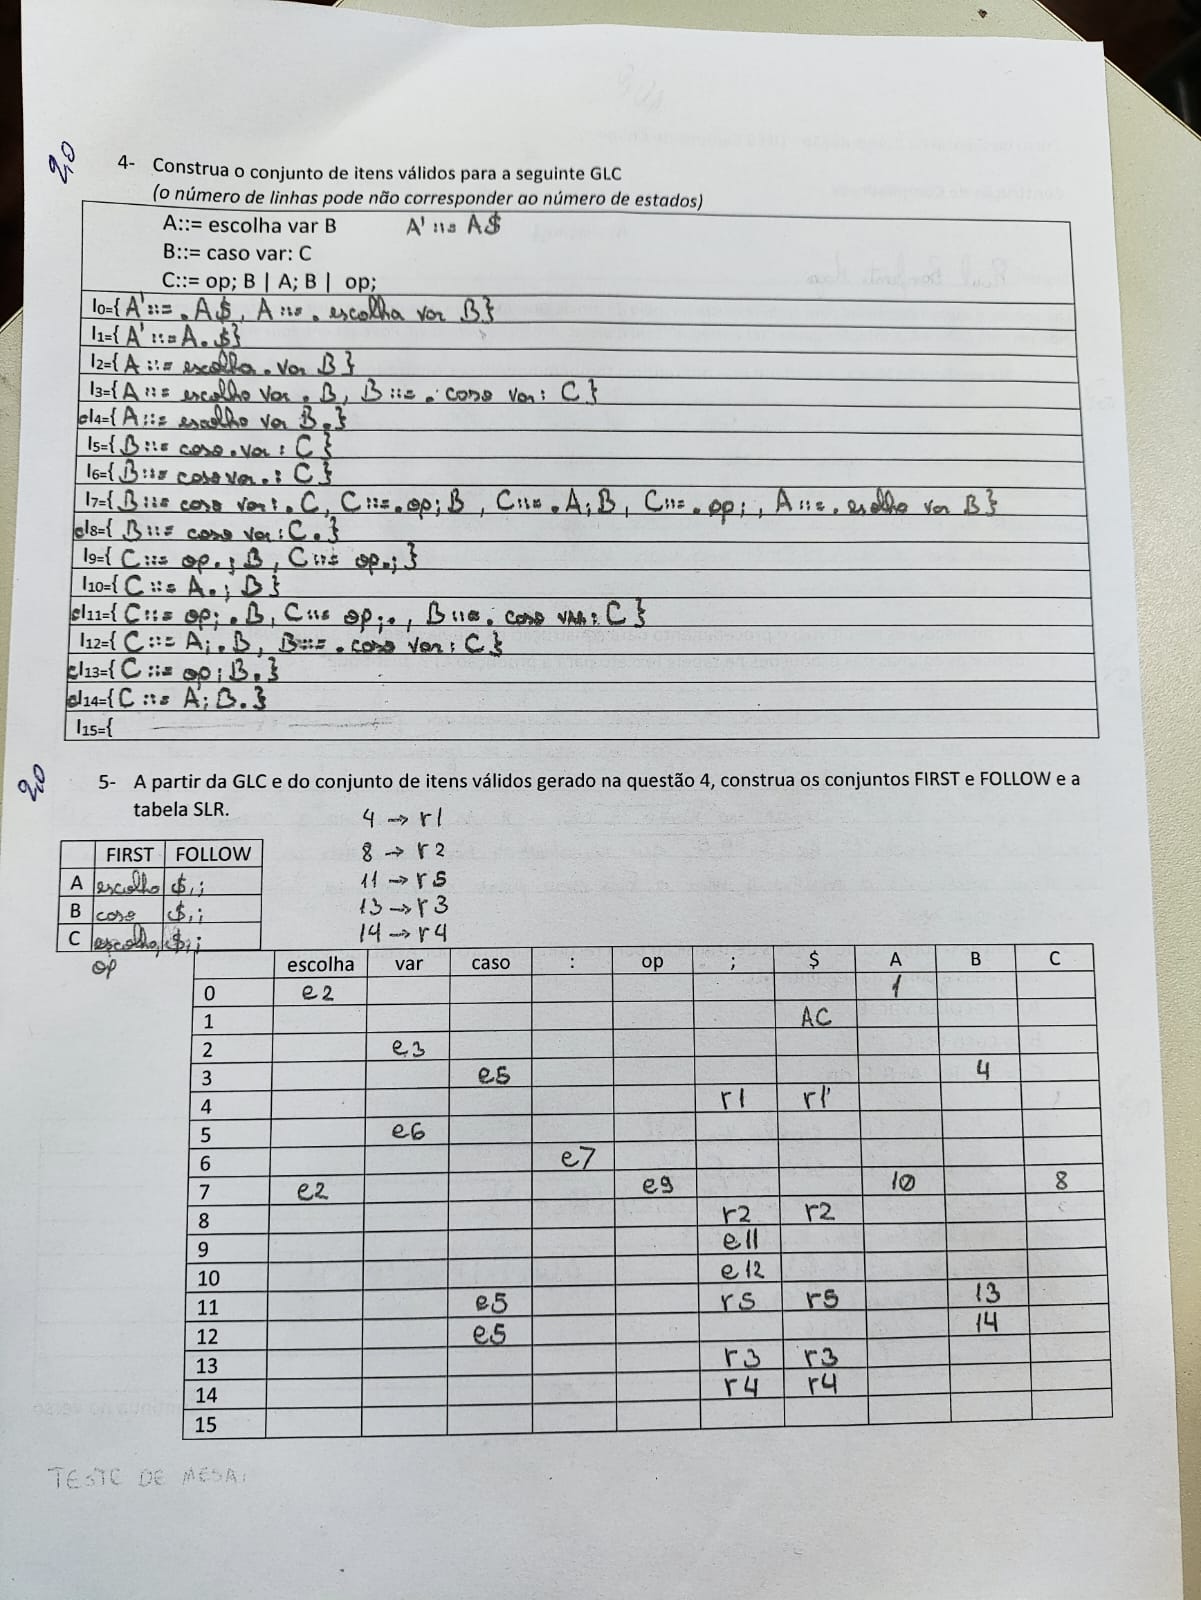 2,0
4- Construa o conjunto de itens válidos para a seguinte GLC
(o número de linhas pode não corresponder ao número de estados)
A::= escolha var B A' ::= A$
B::= caso var: C
C::= op; B | A; B | op;
I0={ A' ::= . A $, A ::= . escolha var B}
I1={ A' ::= A . $}
I2={ A ::= escolha . var B }
I3={ A ::= escolha var . B, B ::= . caso var : C }
I4={ A ::= escolha var B . }
I5={ B ::= caso . var : C }
I6={ B ::= caso var . : C }
I7={ B ::= caso var : . C, C ::= . op; B , C ::= . A; B , C ::= . op; , A ::= . escolha var B }
I8={ B ::= caso var : C . }
I9={ C ::= op . ; B , C ::= op . ; }
I10={ C ::= A . ; B }
I11={ C ::= op; . B, C ::= op; . , B ::= . caso var : C }
I12={ C ::= A; . B, B ::= . caso var : C }
I13={ C ::= op; B . }
I14={ C ::= A; B . }
I15={
2,0
5- A partir da GLC e do conjunto de itens válidos gerado na questão 4, construa os conjuntos FIRST e FOLLOW e a
tabela SLR.
4 -> r1
8 -> r2
11 -> r5
13 -> r3
14 -> r4
FIRST FOLLOW
A escolha $, ;
B caso $, ;
C escolha, op $, ;
escolha var caso : op ; $ A B C
0 e2 1
1 AC
2 e3
3 e5 4
4 r1 r1
5 e6
6 e7
7 e2 e9 10 8
8 r2 r2
9 e11
10 e12
11 e5 r5 r5 13
12 e5 14
13 r3 r3
14 r4 r4
15
TESTE DE MESA: